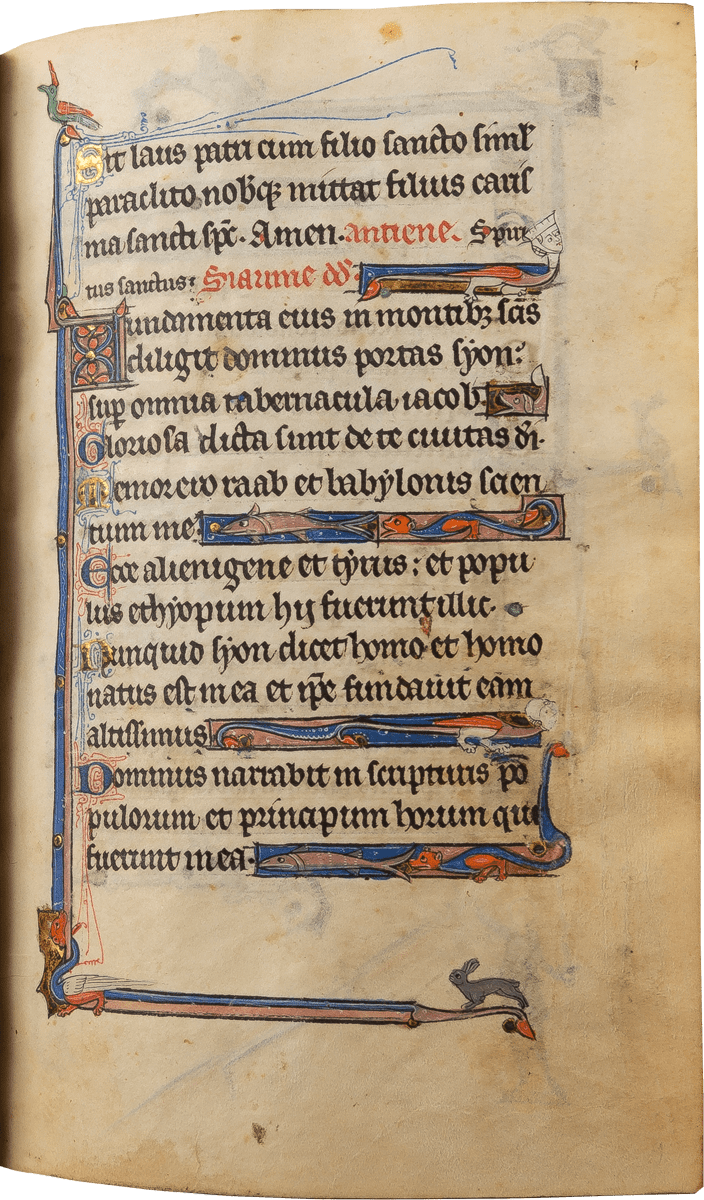 Sit laus patri cum filio sancto simł
paraclito nob̄qꝫ mittat filius caris
ma sancti sp̄c. Amen. antiene. Spiri
tus sanctus:
undamenta eius in montibꝫ sc̄is
diligit dominus portas syon:
suꝑ omnia tabernacula iacob.
Gloriosa dicta sunt de te civitas d̄i.
Memor ero raab et babylonis scien
tium me:
Ecce alienigene et tyrus: et popu
lus ethyopum hij fuerunt illic.
Nunquid syon dicet homo et homo
natus est in ea et ip̄e fundavit eam
altissimus
Dominus narrabit in scripturis po
pulorum et principum horum qui
fuerunt in ea.